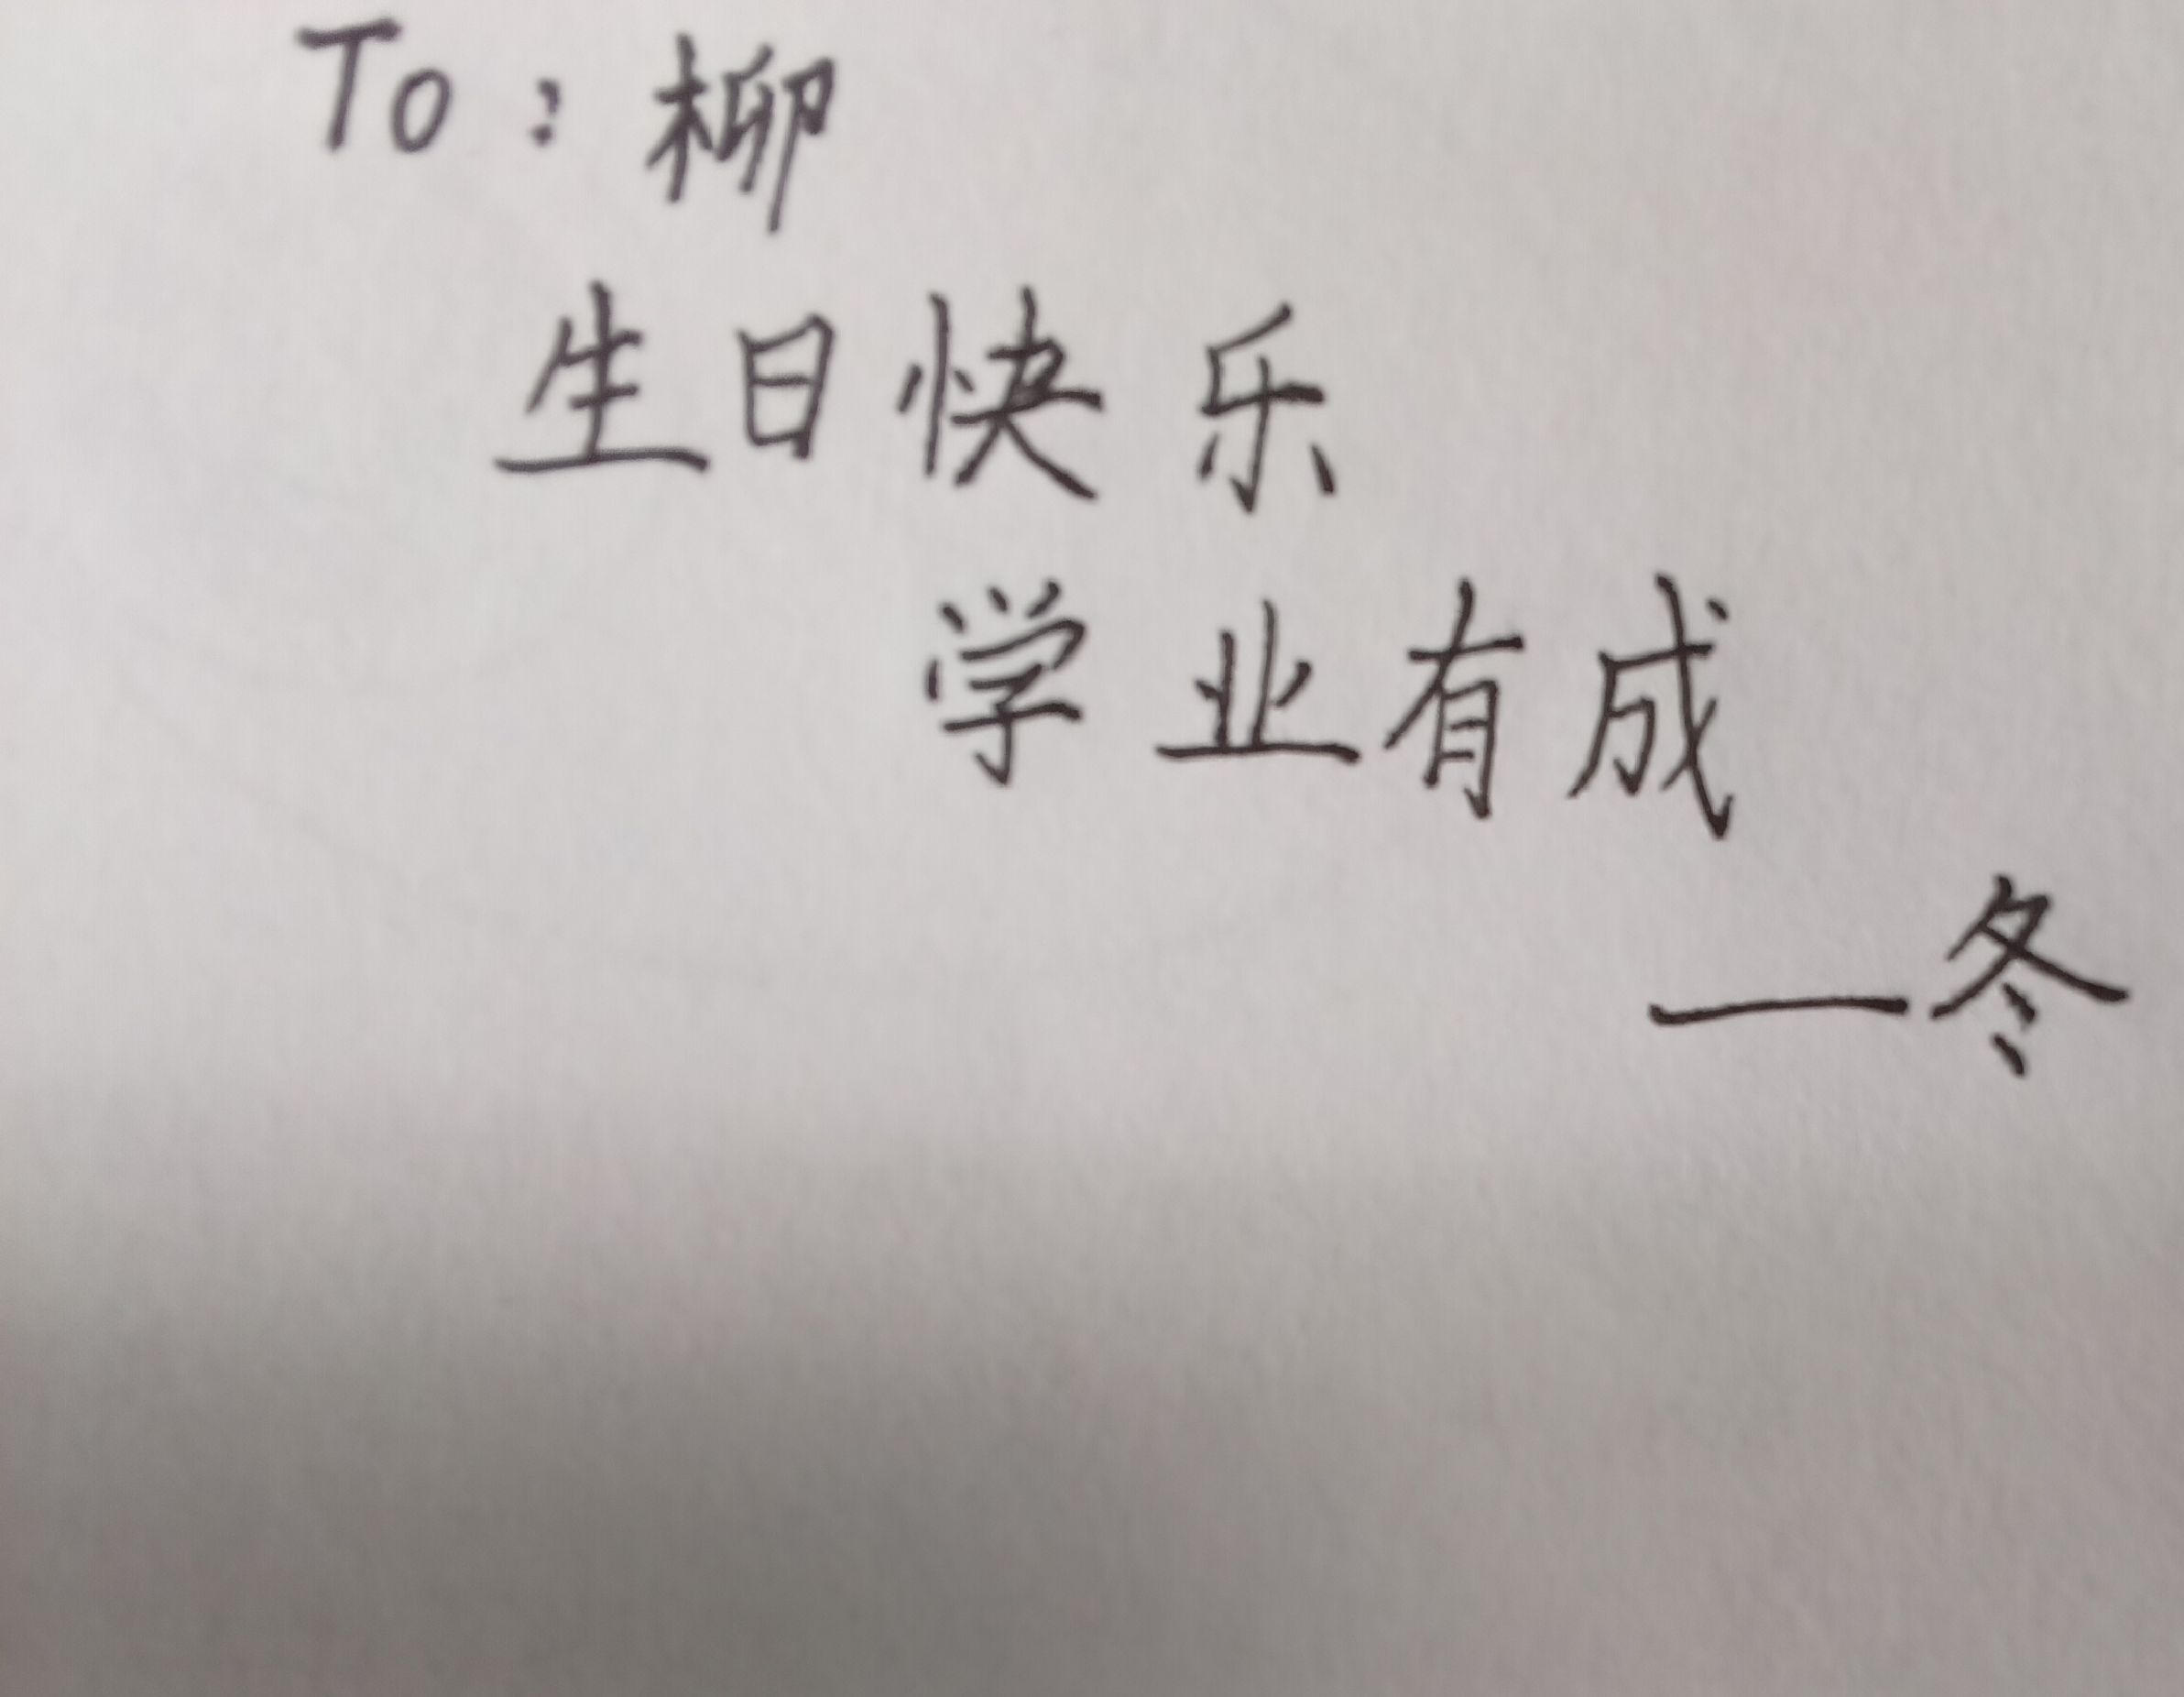 To：柳
生日快乐
学业有成
—冬